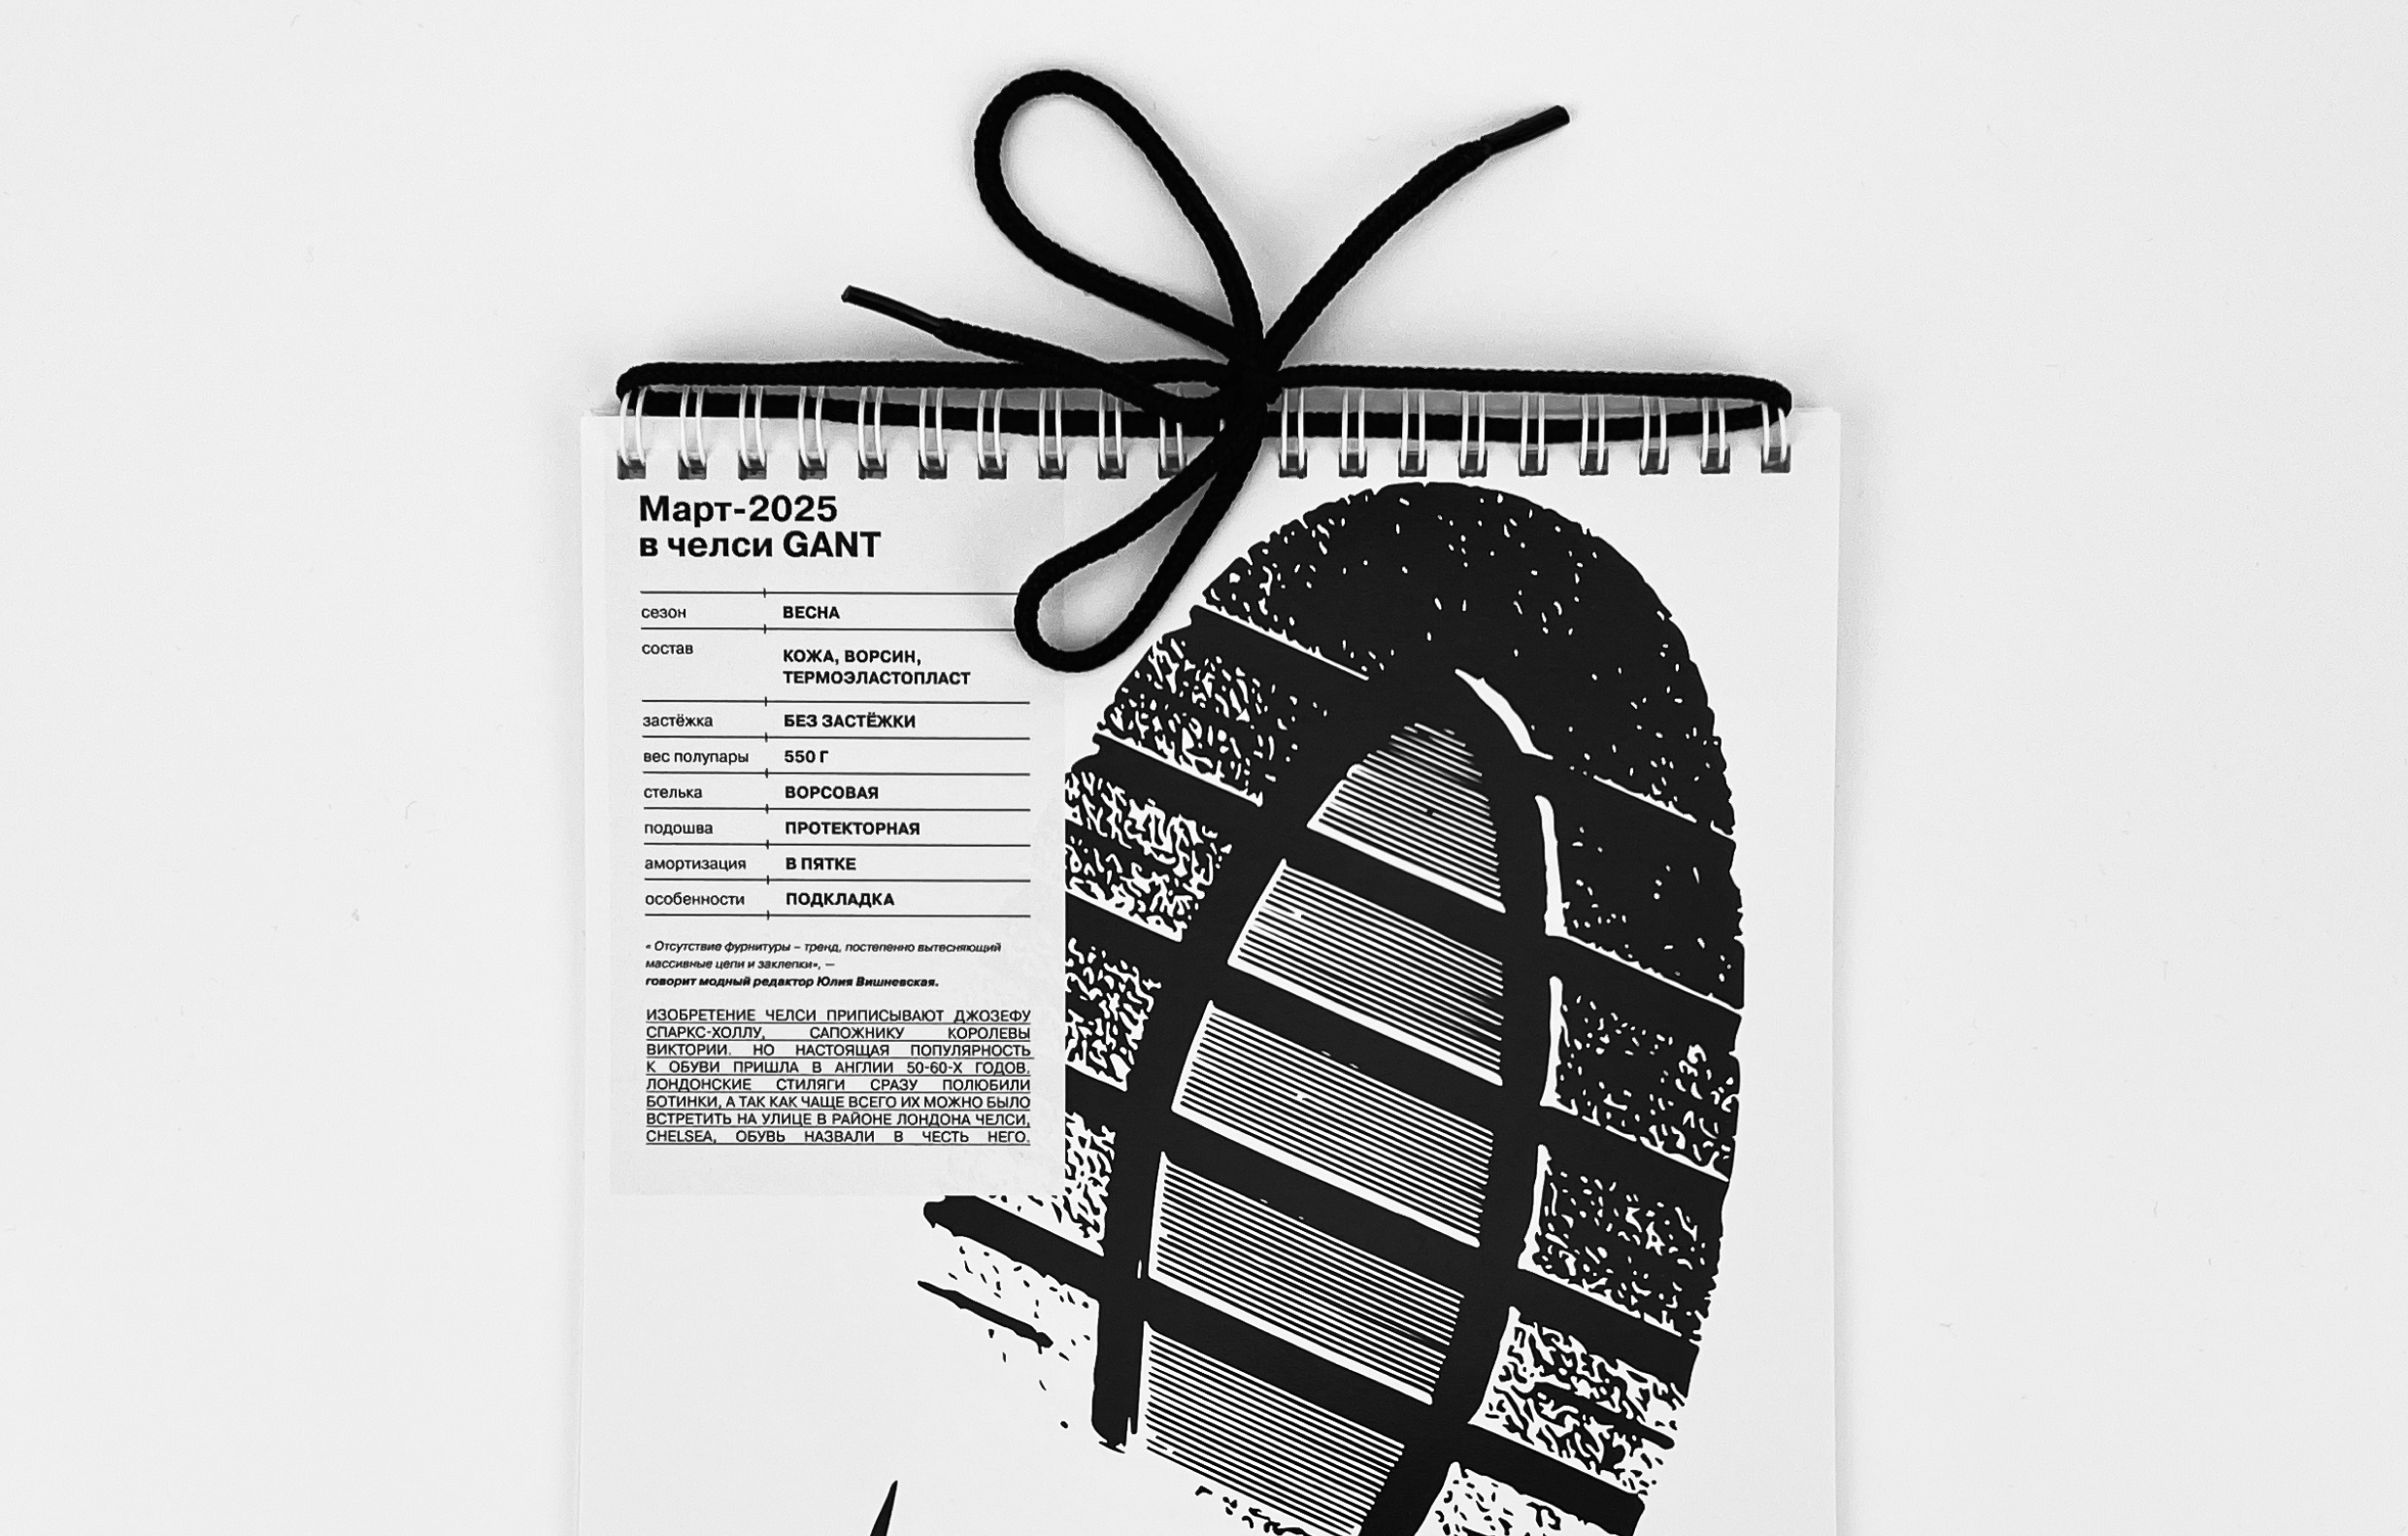 Март-2025
в челси GANT
сезон ВЕСНА
состав КОЖА, ВОРСИН,
ТЕРМОЭЛАСТОПЛАСТ
застёжка БЕЗ ЗАСТЁЖКИ
вес полупары 550 Г
стелька ВОРСОВАЯ
подошва ПРОТЕКТОРНАЯ
амортизация В ПЯТКЕ
особенности ПОДКЛАДКА
« Отсутствие фурнитуры – тренд, постепенно вытесняющий
массивные цепи и заклепки», —
говорит модный редактор Юлия Вишневская.
ИЗОБРЕТЕНИЕ ЧЕЛСИ ПРИПИСЫВАЮТ ДЖОЗЕФУ
СПАРКС-ХОЛЛУ, САПОЖНИКУ КОРОЛЕВЫ
ВИКТОРИИ. НО НАСТОЯЩАЯ ПОПУЛЯРНОСТЬ
К ОБУВИ ПРИШЛА В АНГЛИИ 50-60-Х ГОДОВ.
ЛОНДОНСКИЕ СТИЛЯГИ СРАЗУ ПОЛЮБИЛИ
БОТИНКИ, А ТАК КАК ЧАЩЕ ВСЕГО ИХ МОЖНО БЫЛО
ВСТРЕТИТЬ НА УЛИЦЕ В РАЙОНЕ ЛОНДОНА ЧЕЛСИ,
CHELSEA, ОБУВЬ НАЗВАЛИ В ЧЕСТЬ НЕГО.